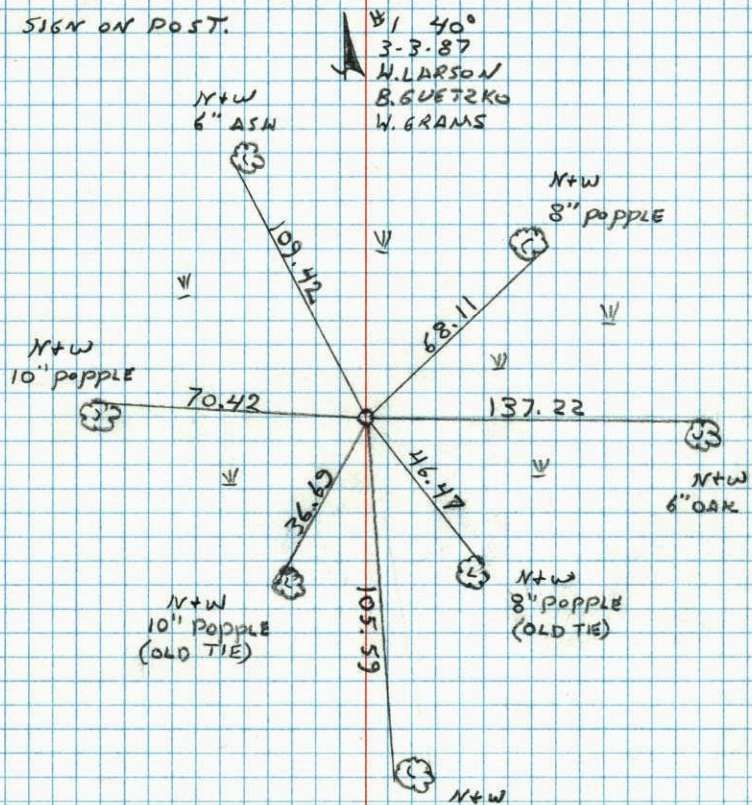 SIGN ON POST.
#1 40°
3-3-87
W. LARSON
B. GUETZKO
W. GRAMS
N+W
6" ASH
N+W
8" POPPLE
109.42
68.11
N+W
10" POPPLE
70.42
137.22
N+W
6" OAK
36.69
46.47
N+W
10" POPPLE
(OLD TIE)
105.59
N+W
8" POPPLE
(OLD TIE)
N+W